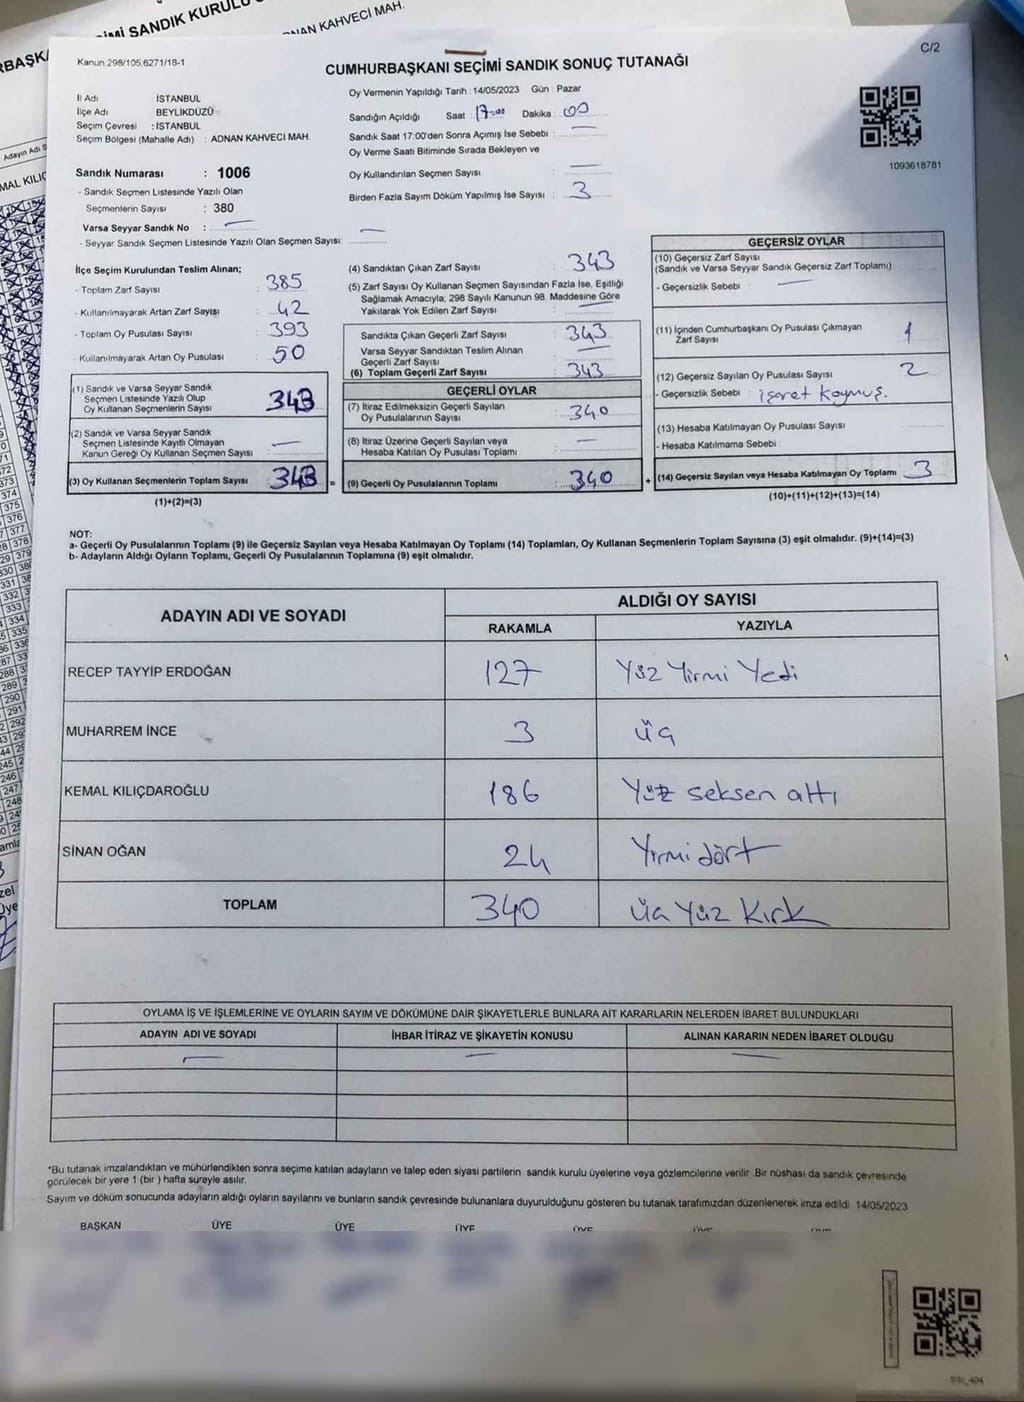 ADNAN KAHVECİ MAH.
C/2
Kanun 298/105 6271/18-1
CUMHURBAŞKANI SEÇİMİ SANDIK SONUÇ TUTANAĞI
İl Adı İSTANBUL
İlçe Adı BEYLİKDÜZÜ
Seçim Çevresi : İSTANBUL
Seçim Bölgesi (Mahalle Adı) : ADNAN KAHVECİ MAH.
Sandık Numarası : 1006
- Sandık Seçmen Listesinde Yazılı Olan
Seçmenlerin Sayısı : 380
Varsa Seyyar Sandık No :
- Seyyar Sandık Seçmen Listesinde Yazılı Olan Seçmen Sayısı:
Oy Vermenin Yapıldığı Tarih : 14/05/2023 Gün : Pazar
Sandığın Açıldığı Saat : 17:00 Dakika : 00
Sandık Saat 17:00'den Sonra Açımış İse Sebebi :
Oy Verme Saati Bitiminde Sırada Bekleyen ve
Oy Kullandırılan Seçmen Sayısı :
Birden Fazla Sayım Döküm Yapılmış İse Sayısı : 3
1093618781
İlçe Seçim Kurulundan Teslim Alınan;
- Toplam Zarf Sayısı : 385
- Kullanılmayarak Artan Zarf Sayısı : 42
- Toplam Oy Pusulası Sayısı : 393
- Kullanılmayarak Artan Oy Pusulası : 50
(1) Sandık ve Varsa Seyyar Sandık
Seçmen Listesinde Yazılı Olup
Oy Kullanan Seçmenlerin Sayısı : 343
(2) Sandık ve Varsa Seyyar Sandık
Seçmen Listesinde Kayıtlı Olmayan
Kanun Gereği Oy Kullanan Seçmen Sayısı :
(3) Oy Kullanan Seçmenlerin Toplam Sayısı : 343 =
(1)+(2)=(3)
(4) Sandıktan Çıkan Zarf Sayısı : 343
(5) Zarf Sayısı Oy Kullanan Seçmen Sayısından Fazla İse, Eşitliği
Sağlamak Amacıyla; 298 Sayılı Kanunun 98. Maddesine Göre
Yakılarak Yok Edilen Zarf Sayısı :
Sandıkta Çıkan Geçerli Zarf Sayısı : 343
Varsa Seyyar Sandıktan Teslim Alınan
Geçerli Zarf Sayısı :
(6) Toplam Geçerli Zarf Sayısı : 343
GEÇERLİ OYLAR
(7) İtiraz Edilmeksizin Geçerli Sayılan
Oy Pusulalarının Sayısı : 340
(8) İtiraz Üzerine Geçerli Sayılan veya
Hesaba Katılan Oy Pusulası Toplamı :
(9) Geçerli Oy Pusulalarının Toplamı : 340 +
GEÇERSİZ OYLAR
(10) Geçersiz Zarf Sayısı
(Sandık ve Varsa Seyyar Sandık Geçersiz Zarf Toplamı)
- Geçersizlik Sebebi :
(11) İçinden Cumhurbaşkanı Oy Pusulası Çıkmayan
Zarf Sayısı : 1
(12) Geçersiz Sayılan Oy Pusulası Sayısı : 2
- Geçersizlik Sebebi : işaret koymuş.
(13) Hesaba Katılmayan Oy Pusulası Sayısı :
- Hesaba Katılmama Sebebi :
(14) Geçersiz Sayılan veya Hesaba Katılmayan Oy Toplamı 3
(10)+(11)+(12)+(13)=(14)
NOT:
a- Geçerli Oy Pusulalarının Toplamı (9) ile Geçersiz Sayılan veya Hesaba Katılmayan Oy Toplamı (14) Toplamları, Oy Kullanan Seçmenlerin Toplam Sayısına (3) eşit olmalıdır. (9)+(14)=(3)
b- Adayların Aldığı Oyların Toplamı, Geçerli Oy Pusulalarının Toplamına (9) eşit olmalıdır.
ADAYIN ADI VE SOYADI ALDIĞI OY SAYISI
RAKAMLA YAZIYLA
RECEP TAYYİP ERDOĞAN 127 Yüz Yirmi Yedi
MUHARREM İNCE 3 üç
KEMAL KILIÇDAROĞLU 186 Yüz seksen altı
SİNAN OĞAN 24 Yirmi dört
TOPLAM 340 üç Yüz Kırk
OYLAMA İŞ VE İŞLEMLERİNE VE OYLARIN SAYIM VE DÖKÜMÜNE DAİR ŞİKAYETLERLE BUNLARA AİT KARARLARIN NELERDEN İBARET BULUNDUKLARI
ADAYIN ADI VE SOYADI İHBAR İTİRAZ VE ŞİKAYETİN KONUSU ALINAN KARARIN NEDEN İBARET OLDUĞU
*Bu tutanak imzalandıktan ve mühürlendikten sonra seçime katılan adayların ve talep eden siyasi partilerin sandık kurulu üyelerine veya gözlemcilerine verilir. Bir nüshası da sandık çevresinde
görülecek bir yere 1 (bir ) hafta süreyle asılır.
Sayım ve döküm sonucunda adayların aldığı oyların sayılarını ve bunların sandık çevresinde bulunanlara duyurulduğunu gösteren bu tutanak tarafımızdan düzenlenerek imza edildi 14/05/2023
BAŞKAN ÜYE ÜYE ÜYE ÜYE ÜYE ÜYE